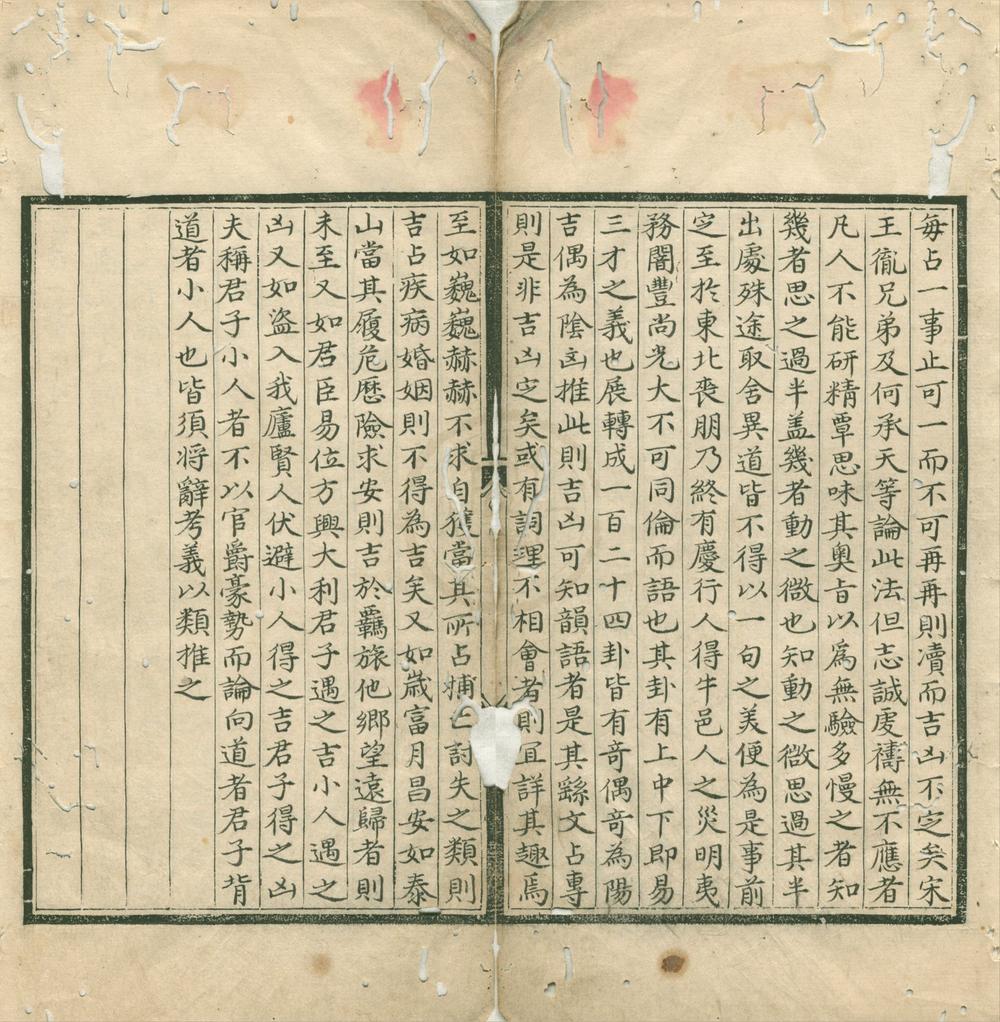 每占一事止可一而不可再再則瀆而吉凶不定矣宋
王微兄弟及何承天等論此法但志誠虔禱無不應者
凡人不能研精覃思味其奧旨以為無驗多慢之者知
幾者思之過半盖幾者動之微也知動之微思過其半
出處殊途取舍異道皆不得以一句之美便為是事前
定至於東北喪朋乃終有慶行人得牛邑人之災明夷
務闇豐尚光大不可同倫而語也其卦有上中下即易
三才之義也展轉成一百二十四卦皆有奇偶奇為陽
吉偶為陰凶推此則吉凶可知韻語者是其繇文占專
則是非吉凶定矣或有詞理不相會者則宜詳其趣焉
至如巍巍赫赫不求自獲當其所占捕亡討失之類則
吉占疾病婚姻則不得為吉矣又如歲富月昌安如泰
山當其履危歷險求安則吉於羈旅他鄉望遠歸者則
未至又如君臣易位方興大利君子遇之吉小人遇之
凶又如盜入我廬賢人伏避小人得之吉君子得之凶
夫稱君子小人者不以官爵豪勢而論向道者君子背
道者小人也皆須将辭考義以類推之